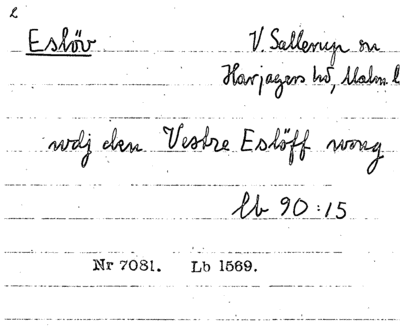 2
Eslöv V. Sallerup sn
Harjagers hd, Malm l
wdj den Vestre Eslöff wong
lb 90:15
Nr 7081. Lb 1569.